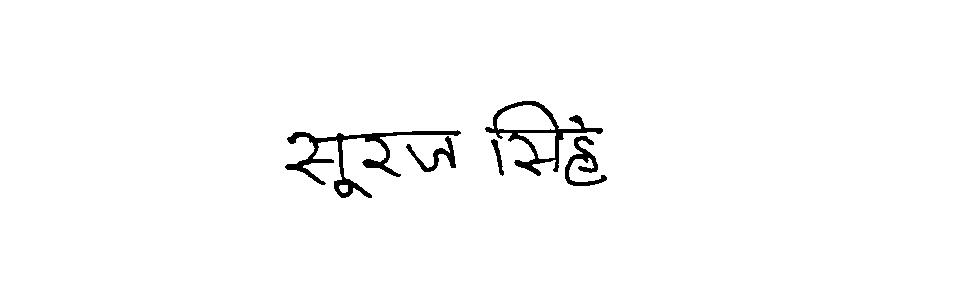 सूरज सिहे